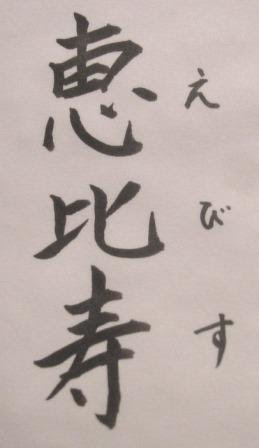 恵比寿
えびす